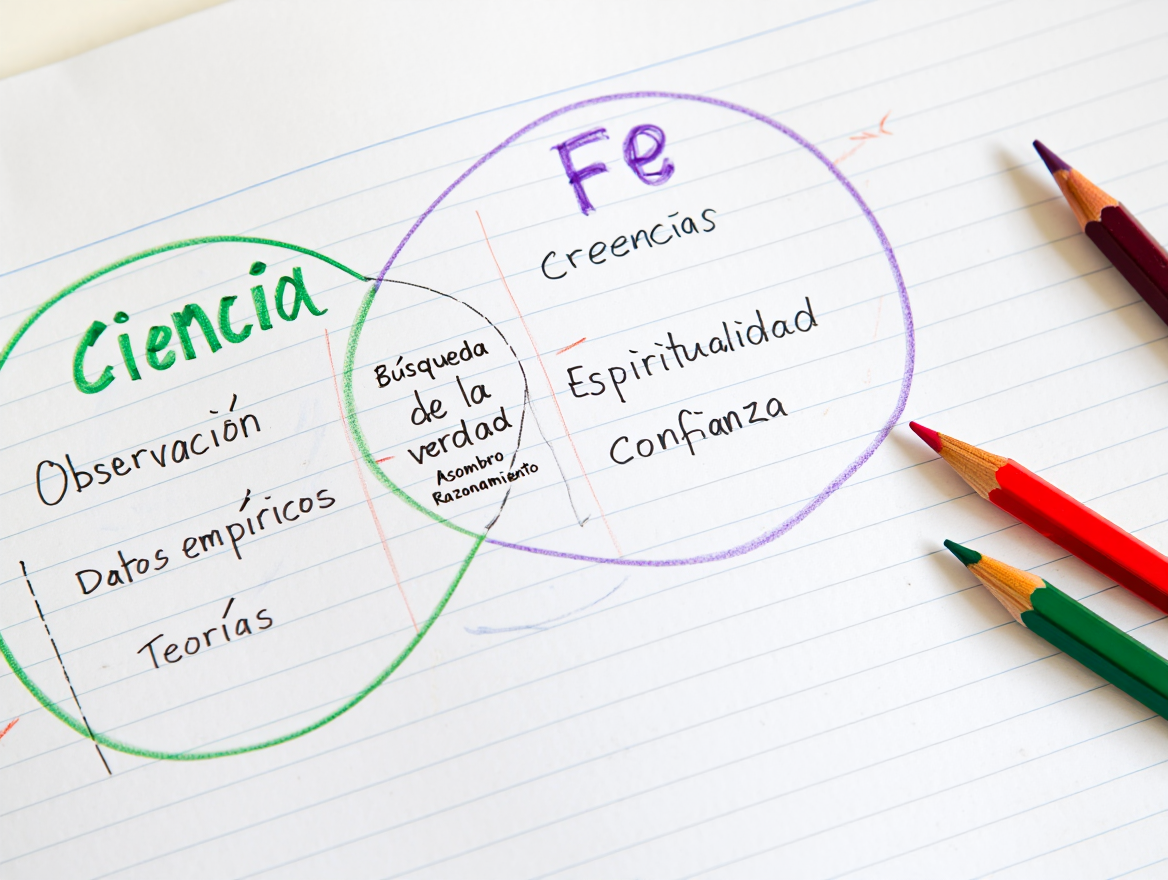 Ciencia
Observación
Datos empíricos
Teorías
Búsqueda
de la
verdad
Asombro
Razonamiento
Fe
Creencias
Espiritualidad
Confianza